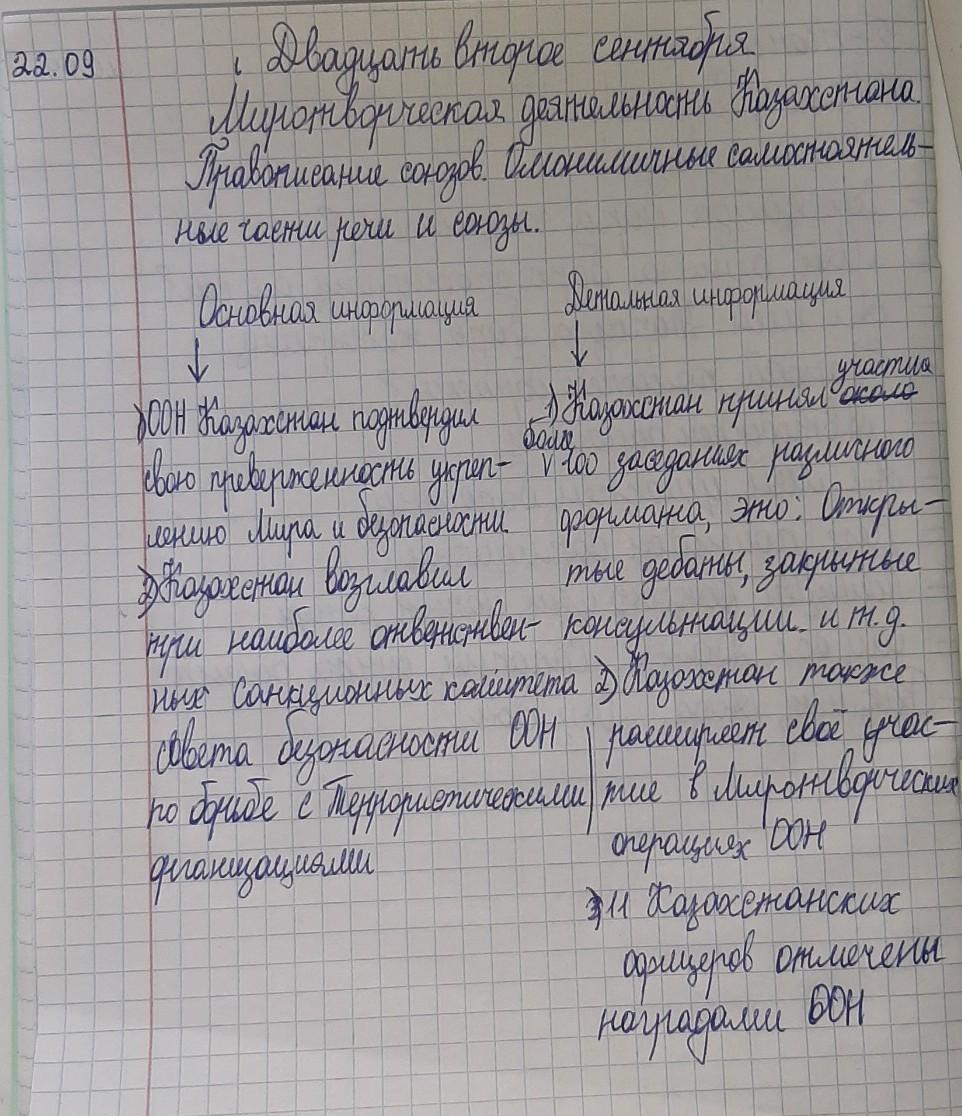 22.09
Двадцать второе сентября
Миротворческая деятельность Казахстана.
Правописание союзов. Омонимичные самостоятель-
ные части речи и союзы.
Основная информация
↓
1) ООН Казахстан подтвердил
свою преверженность укреп-
лению Мира и безопасности
2) Казахстан возглавил
три наиболее ответствен-
ных Санкционных комитета
Совета безопасности ООН
по борьбе с Террористическими
организациями
Детальная информация
↓
участиа
1) Казахстан принял около
более
v 100 заседаниях различного
формата, это: Откры-
тые дебаты, закрытые
консультации и т.д.
2) Казахстан также
расширяет своё учас-
тие в Миротворческих
операциях ООН
3) 11 Казахстанских
офицеров отмечены
наградами ООН